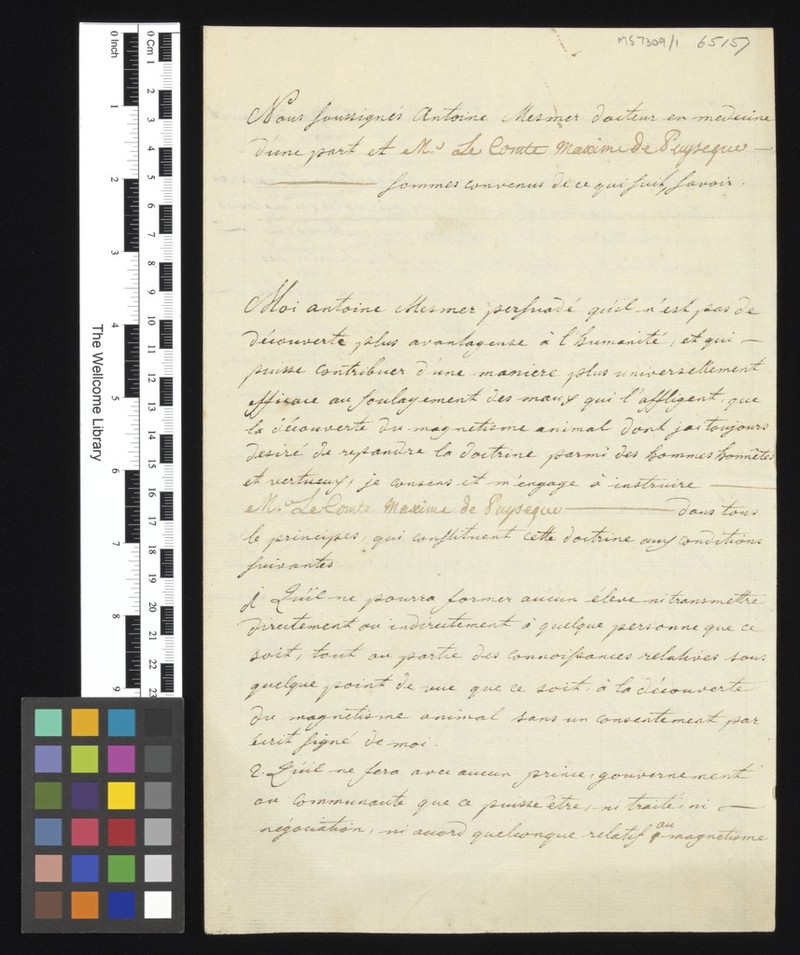 MS7309/1 65157
Nous soussignés Antoine Mesmer docteur en medecine
d'une part et M.r Le Comte Maxime de Puysegue —
— sommes convenus de ce qui suit, savoir.
Moi antoine Mesmer persuadé qu'il n'est pas de
découverte plus avantageuse à l'humanité, et qui —
puisse contribuer d'une maniere plus universellement
efficace au soulagement des maux qui l'affligent, que
la découverte du magnetisme animal dont j'ai toujours
desiré de repandre la doctrine parmi des hommes honnêtes
et vertueux, je consens et m'engage à instruire —
M.r Le Comte Maxime de Puysegue — dans tous
le principes, qui constituent cette doctrine aux conditions
suivantes
1. Qu'il ne pourra former aucun éleve ni transmettre
directement ou indirectement à quelque personne que ce
soit, tout ou partie des connoissances relatives sous
quelque point de vue que ce soit, à la découverte
du magnetisme animal sans un consentement par
écrit signé de moi.
2. Qu'il ne fera avec aucun prince, gouvernement
ou communaute que ce puisse être, ni traité, ni —
négociation, ni accord quelconque relatif au magnetisme
0 Inch
1
2
3
4
5
6
7
8
9
0 Cm 1
2
3
4
5
6
7
8
9
10
11
12
13
14
15
16
17
18
19
20
21
22
23
The Wellcome Library